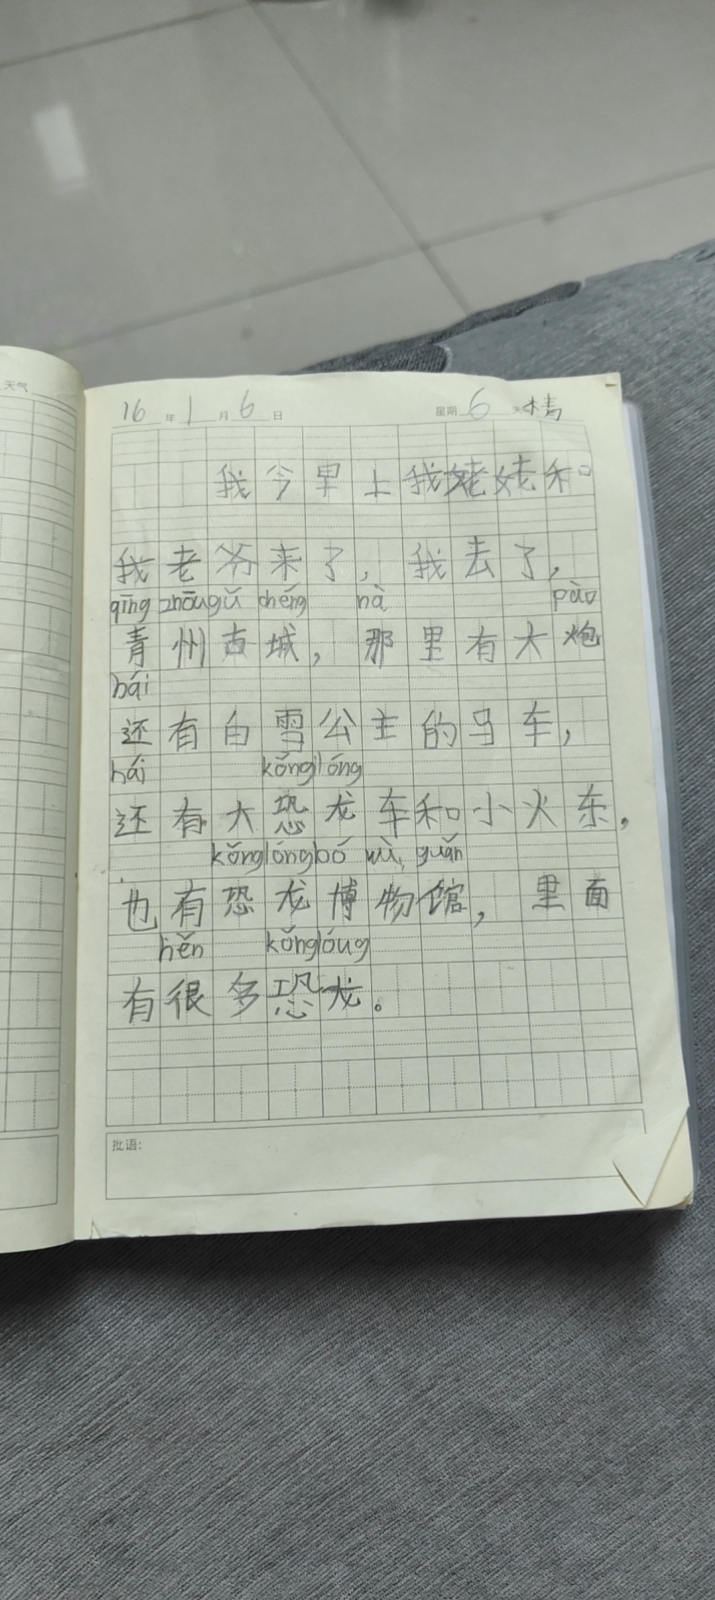 天气
16年1月6日 星期6 天晴
我今早上我姥姥和
我老爷来了，我去了，
qīng zhōu gǔ chéng nà pào
青州古城，那里有大炮
hái
还有白雪公主的马车，
hái kǒng lóng
还有大恐龙车和小火车，
kǒng lóng bó wù guǎn
也有恐龙博物馆，里面
hěn kǒng lóng
有很多恐龙。
批语：